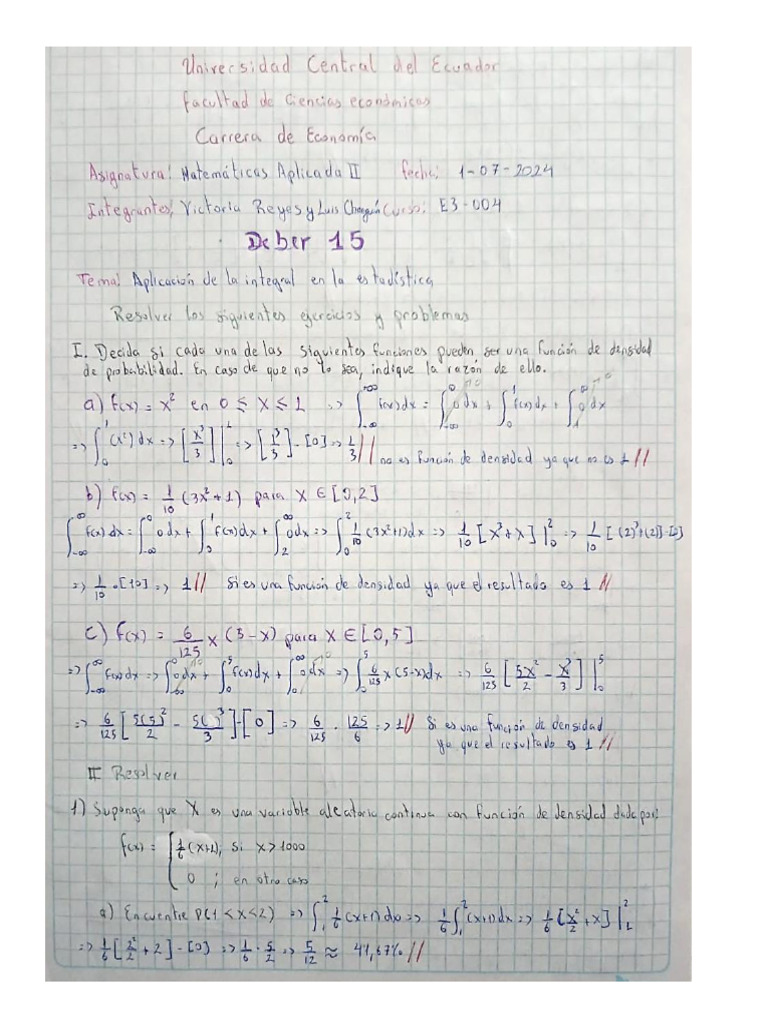 Universidad Central del Ecuador
facultad de Ciencias económicas
Carrera de Economía
Asignatura: Matemáticas Aplicada II fecha: 1-07-2024
Integrantes: Victoria Reyes y Luis Curso: E3-004
Deber 15
Tema: Aplicación de la integral en la estadística
Resolver los siguientes ejercicios y problemas
I. Decida si cada una de las siguientes funciones pueden ser una función de densidad
de probabilidad. En caso de que no lo sea, indique la razón de ello.
a) f(x) = x² en 0 ≤ x ≤ 1 => ∫_{-∞}^{+∞} f(x)dx = ∫_{-∞}^{0} 0dx + ∫_0^1 f(x)dx + ∫_1^∞ 0dx
=> ∫_0^1 (x²)dx => [x³/3]|_0^1 => [1³/3] - [0] => 1/3 // no es función de densidad ya que no es 1 //
b) f(x) = 1/10 (3x²+1) para x ∈ [0,2]
∫_{-∞}^{∞} f(x)dx = ∫_{-∞}^{0} 0dx + ∫_0^1 f(x)dx + ∫_2^∞ 0dx => ∫_0^2 1/10 (3x²+1)dx => 1/10 [x³+x]|_0^2 => 1/10 [(2)³+(2)]-[0]
=> 1/10 · [10] => 1 // Si es una función de densidad ya que el resultado es 1 //
c) f(x) = 6/125 x (5-x) para x ∈ [0,5]
=> ∫_{-∞}^{∞} f(x)dx => ∫_{-∞}^{0} 0dx + ∫_0^5 f(x)dx + ∫_5^∞ 0dx => ∫_0^5 6/125 x(5-x)dx => 6/125 [5x²/2 - x³/3]|_0^5
=> 6/125 [5(5)²/2 - 5( )³/3] - [0] => 6/125 · 125/6 => 1 // Si es una función de densidad
ya que el resultado es 1 //
II Resolver
1.) Suponga que X es una variable aleatoria continua con función de densidad dada por:
f(x) = { 1/6 (x+1); si x > 1000
0 ; en otro caso
a) Encuentre P(1 < x < 2) => ∫_1^2 1/6 (x+1)dx => 1/6 ∫_1^2 (x+1)dx => 1/6 [x²/2 + x]|_1^2
=> 1/6 [2²/2 + 2] - [0] => 1/6 · 5/2 => 5/12 ≈ 41,67% //